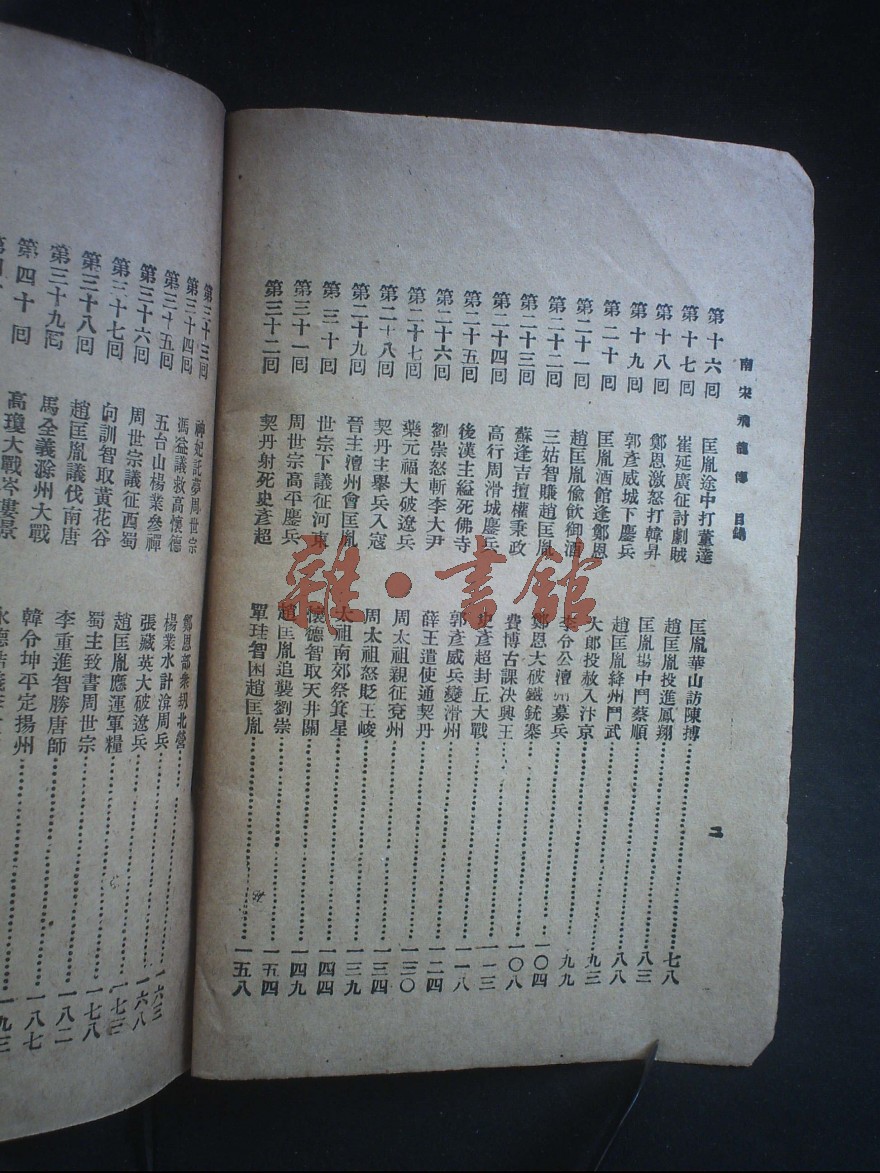 南宋飛龍傳 目錄 二
第十六囘 匡胤途中打董達 匡胤華山訪陳摶 七八
第十七囘 崔延廣征討劇賊 趙匡胤投進鳳翔 八三
第十八囘 鄭恩激怒打韓昇 匡胤場中鬥蔡順 八八
第十九囘 郭彥威城下鏖兵 趙匡胤絳州鬥武 九三
第二十囘 匡胤酒館逢鄭恩 大郎投赦入汴京 九九
第二十一囘 趙匡胤偷飲御酒 令公澶州募兵 一〇四
第二十二囘 三姑智賺趙匡胤 鄭恩大破鐵銃寨 一〇八
第二十三囘 蘇逢吉擅權秉政 費博古課決興王 一一三
第二十四囘 高行周滑城鏖兵 史彥超封丘大戰 一一八
第二十五囘 後漢主縊死佛寺 郭彥威兵變滑州 一二四
第二十六囘 劉崇怒斬李大尹 薛王遣使通契丹 一三〇
第二十七囘 藥元福大破遼兵 周太祖親征兗州 一三四
第二十八囘 契丹主舉兵入寇 周太祖怒貶王峻 一三九
第二十九囘 晉主澶州會匡胤 太祖南郊祭箕星 一四四
第三十囘 世宗下議征河東 懷德智取天井關 一四九
第三十一囘 周世宗高平鏖兵 趙匡胤追襲劉崇 一五四
第三十二囘 契丹射死史彥超 單珪智困趙匡胤 一五八
第三十三囘 神妃託夢周世宗 鄭恩部衆劫北營 一六三
第三十四囘 馮益議救高懷德 楊業水計渰周兵 一六八
第三十五囘 五台山楊業參禪 張藏英大破遼兵 一七三
第三十六囘 周世宗議征西蜀 趙匡胤應運軍糧 一七八
第三十七囘 向訓智取黃花谷 蜀主致書周世宗 一八二
第三十八囘 趙匡胤議伐南唐 李重進智勝唐師 一八七
第三十九囘 馬全義滁州大戰 韓令坤平定揚州 一九三
第四十囘 高瓊大戰岑樓景
雜·書館